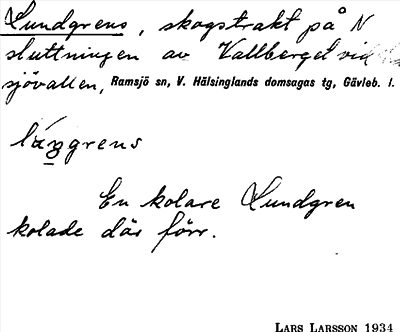 Lundgrens, skogstrakt på N
sluttningen av Vallberget vid
sjövallen, Ramsjö sn, V. Hälsinglands domsagas tg, Gävleb. l.
längrens
En kolare Lundgren
kolade där förr.
LARS LARSSON 1934